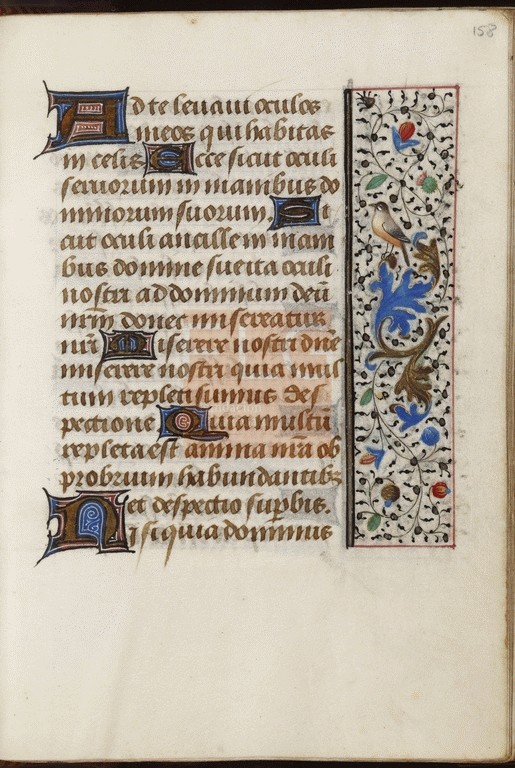 158
Ad te leuaui oculos
meos qui habitas
in celis Ecce sicut oculi
seruorum in manibus do
minorum suorum. Si
cut oculi ancille in mani
bus domine sue ita oculi
nostri ad dominum deū
nrm̄ donec misereatur
nrī Miserere nostri dn̄e
miserere nostri quia mul
tum repleti sumus des
pectione Quia multū
repleta est anima nrā ob
probrium habundantibꝫ
et despectio suꝑbis.
Nisi quia dominus